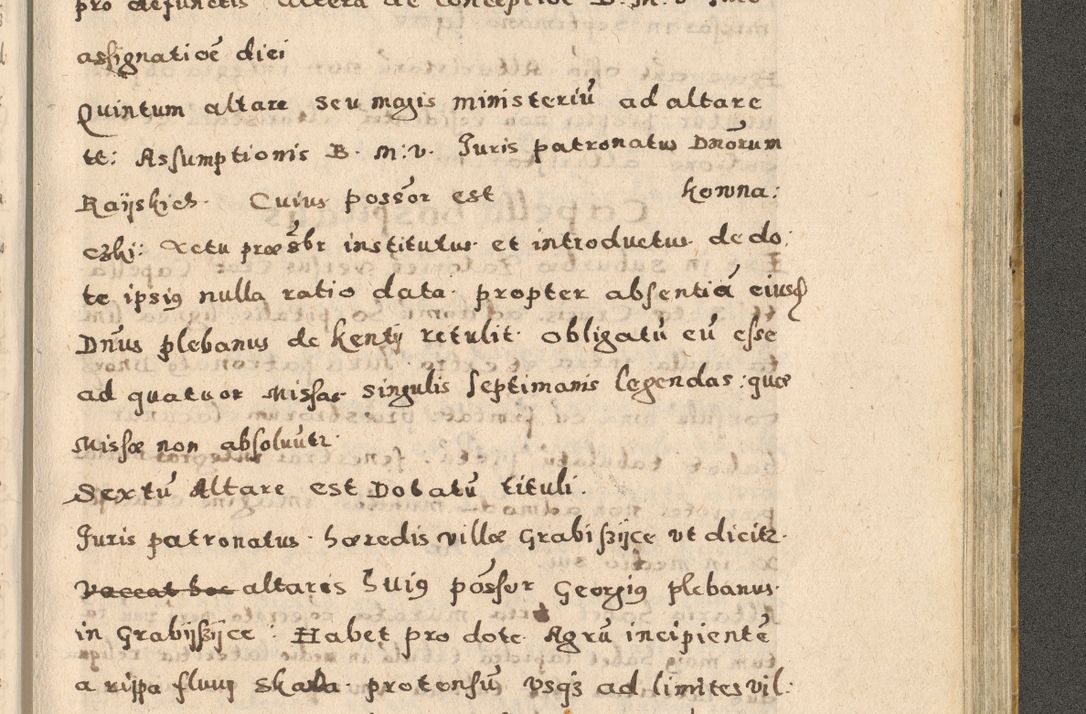 pro defunctis altera de conceptioe B. M. V.
assignatioē diei
Quintum altare seu magis ministeriū ad altare
tt: Assumptionis B. M: V. Juris patronatus Dnōrum
Raÿskich. Cuius possōr est kowna:
czki: Actu præsbr institutus et introductus de do:
te ipsi9 nulla ratio data. propter absentiā eiusq
Dn̄us plebanus de Kentÿ retulit. obligatū eū esse
ad quatuor Missas singulis septimanis legendas: quæ
Missæ non absoluūtr.
Sextū Altare est Dotatū tituli.
Juris patronatus. hæredis villæ Grabiszÿce vt dicitr.
Vaccat hoc altaris hui9 possōr Georgi9 plebanus.
in Grabÿszÿce. Habet pro dote. Agrū incipientē
a rippa fluuÿ Skawa. protensū vsq3 ad limites vil: